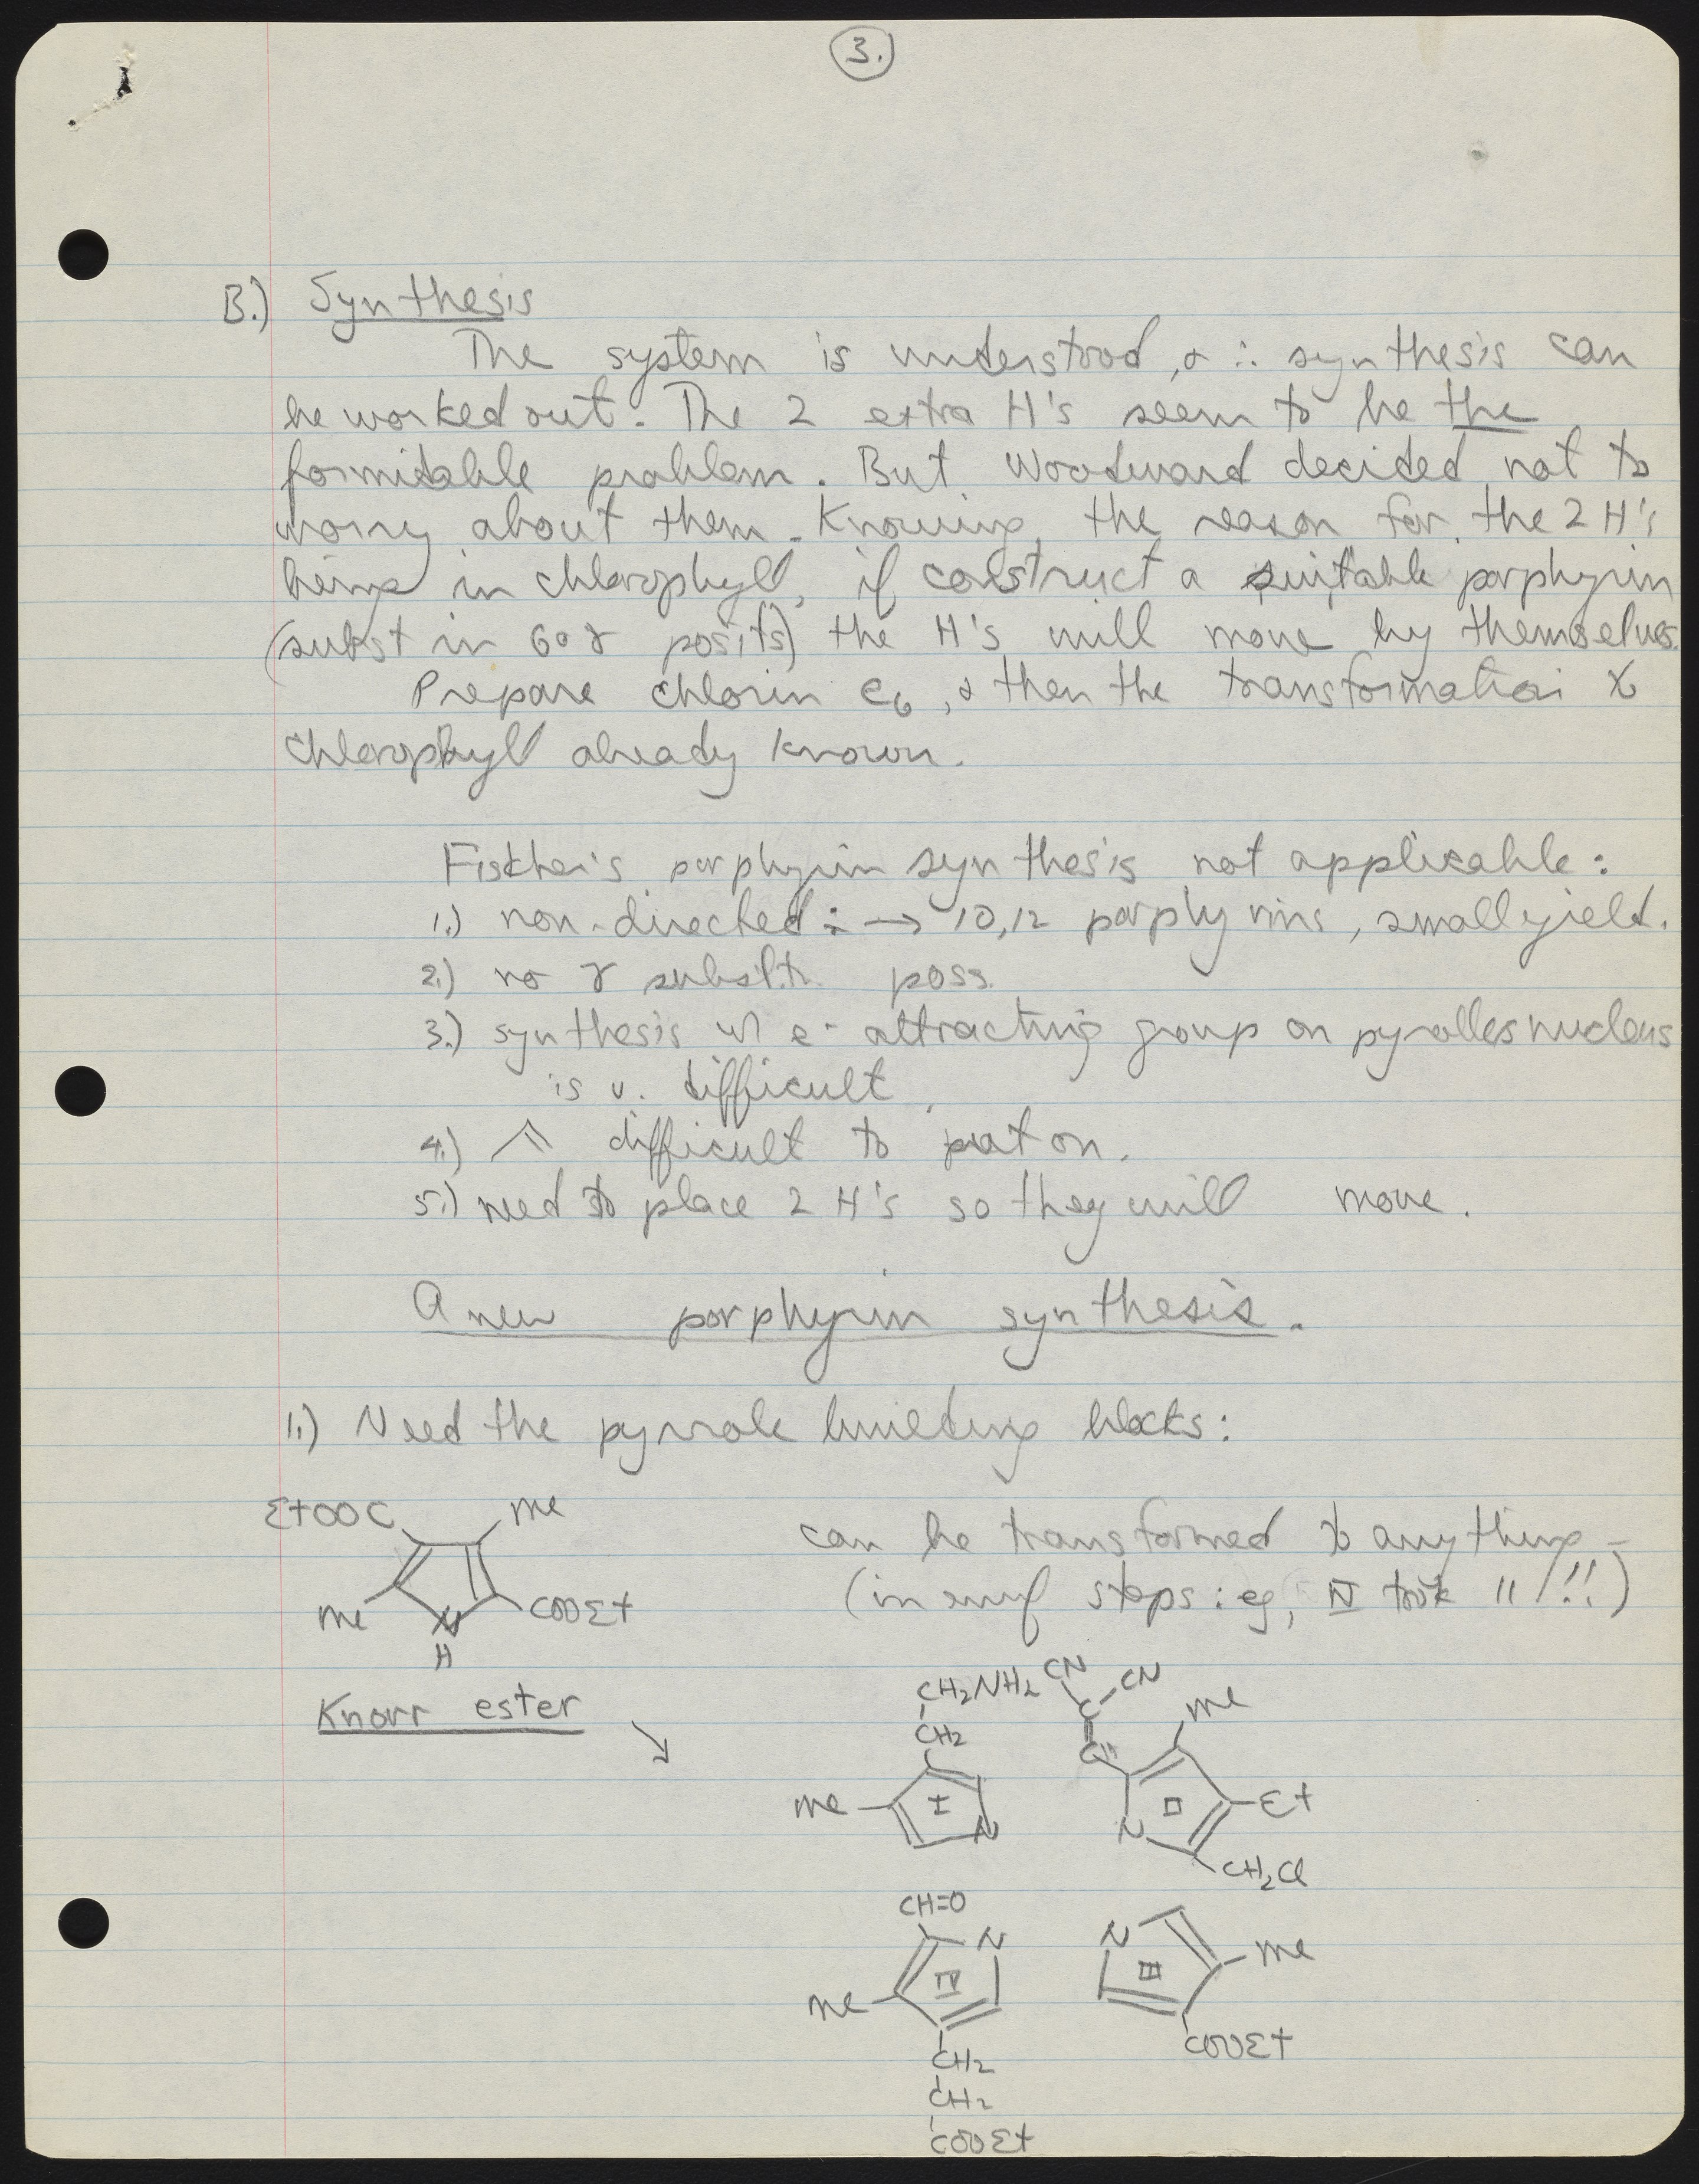 3.
B.) Synthesis
The system is understood, & ∴ synthesis can
be worked out. The 2 extra H's seem to be the
formidable problem. But Woodward decided not to
worry about them. Knowing the reason for the 2 H's
being in chlorophyll, if construct a suitable porphyrin
(subst in 6 & γ posits) the H's will move by themselves.
Prepare chlorin e6, & then the transformation to
chlorophyll already known.
Fischer's porphyrin synthesis not applicable:
1.) non-directed: → 10,12 porphyrins, small yield.
2.) no γ substit. poss.
3.) synthesis w/ e- attracting group on pyrolles nucleus
is v. difficult.
4.) difficult to put on.
5.) need to place 2 H's so they will move.
A new porphyrin synthesis.
1.) Need the pyrrole building blocks:
EtOOC Me
can be transformed to anything -
Me N COOEt
H
(in suf steps: eg, IV took 11!!!)
Knorr ester ↘
CH2NH2 CN CN
CH2 C Me
C
Me I N
N II Et
CH2Cl
CH=O
N N
Me IV III Me
CH2 COOEt
CH2
COOEt